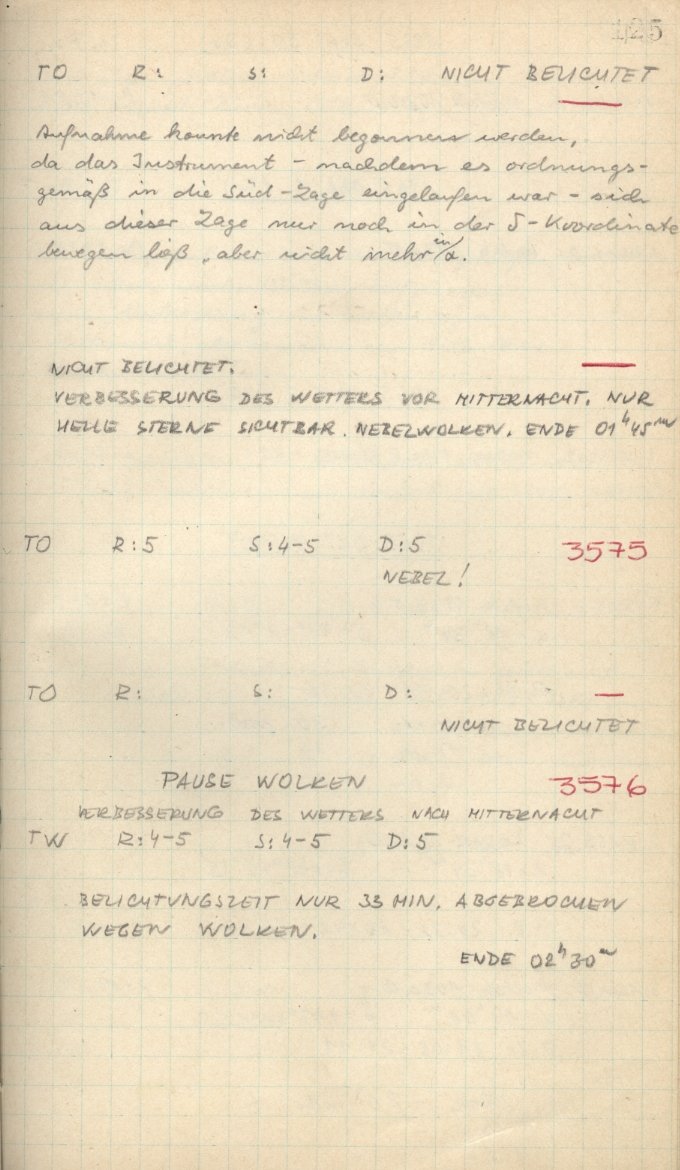 125
TO R: S: D: NICHT BELICHTET
Aufnahme konnte nicht begonnen werden,
da das Instrument - nachdem es ordnungs-
gemäß in die Süd-Lage eingelaufen war - sich
aus dieser Lage nur noch in der δ-Koordinate
bewegen ließ, aber nicht mehr in α.
NICHT BELICHTET.
VERBESSERUNG DES WETTERS VOR MITTERNACHT. NUR
HELLE STERNE SICHTBAR. NEBELWOLKEN. ENDE 01h 45m
TO R:5 S:4-5 D:5 3575
NEBEL!
TO R: S: D: —
NICHT BELICHTET
PAUSE WOLKEN 3576
VERBESSERUNG DES WETTERS NACH MITTERNACHT
TW R:4-5 S:4-5 D:5
BELICHTUNGSZEIT NUR 33 MIN. ABGEBROCHEN
WEGEN WOLKEN.
ENDE 02h 30m